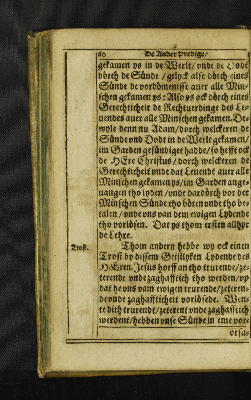 60 De Ander Predige/
gekamen ys in de Werlt/ vnde de Dodt
dörch de Sünde / gelyck alse dörch eines
Sünde de vordömenisse auer alle Min-
schen gekamen ys: Also ys ock dörch eines
Gerechticheit de Rechtuerdinge des Le-
uendes auer alle Minschen gekamen. De-
wyle denn nu Adam/ dorch welckeren de
Sünde vnd Dodt in de Werle gekamen/
im Garden gesündiget hadde/ so hefft ock
de HEre Christus/ dorch welckeren de
Gerechticheit vnde dat Leuende auer alle
Minschen gekamen ys/ im Garden ange-
uangen tho lyden / vnde dardörch vor der
Minschen Sünde tho böten vnde tho be-
talen / vnde vns van dem ewigen Lydende
tho vorlösen. Dat ys thom ersten allhyr
de Lehre.
Trost.
Thom andern hebbe wy ock einen
Trost by dissem Geistlyken Lydende des
HEren. Jesus hefft an tho trurende/ze-
terende vnde zaghafftich tho werden/ vp
dat he vns vam ewigen trurende/zeteren-
de vnde zaghafftticheit vorlösede. Wen-
te dith trurendt/ zeterent vnde zaghafftich
werdent/ hebben vnse Sünde in eme vor-
orsa-